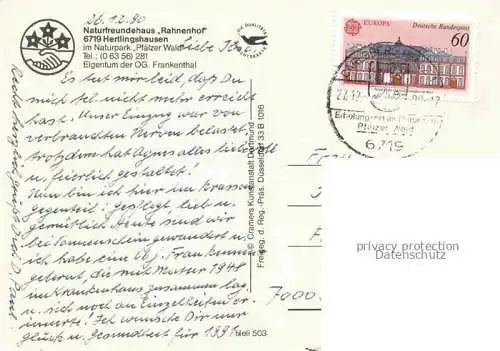 26.12.90
Naturfreundehaus „Rahnenhof"
6719 Hertlingshausen
im Naturpark „Pfälzer Wald"
Tel.: (0 63 56) 281
Eigentum der OG. Frankenthal
Liebe
Es tut mir leid, daß Du
mich tel nicht mehr erreicht
hast. Unser Einzug war von
verbrannten Hirnen belastet
trotzdem hat Agnes alles liebevoll
u. feierlich gestaltet!
Nun bin ich hier im krassen
Gegenteil: gepflegt lieb u.
gemütlich. Heute sind wir
bei Sonnenschein gewandert u.
ich habe eine Frau kennen
gelernt, die mit 1948
im Krankenhaus zusammen lag
u. sich noch an Einzelheiten er-
innerte! Ich wünsche Dir nur
Glück u. Gesundheit für 1991
Recht herzlich grüßt Dich
© Cramers Kunstanstalt Dortmund
Freigeg. d. Reg.-Präs. Düsseldorf 33 B 1016
bleli 503
EUROPA
Deutsche Bundespost
60
Pfälzer Wald
6719
7000
privacy protection
Datenschutz